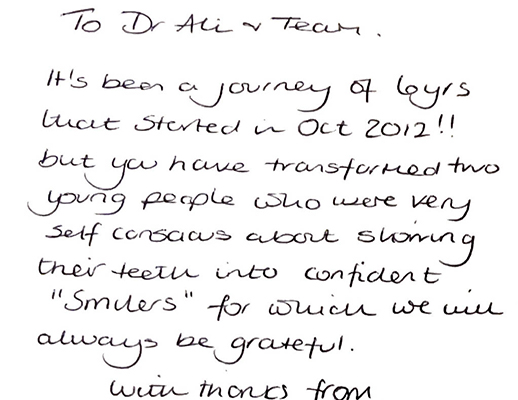 To Dr Ali & Team.
It's been a journey of 6yrs
that started in Oct 2012!!
but you have transformed two
young people who were very
self conscious about showing
their teeth into confident
"Smilers" for which we will
always be grateful.
With thanks from